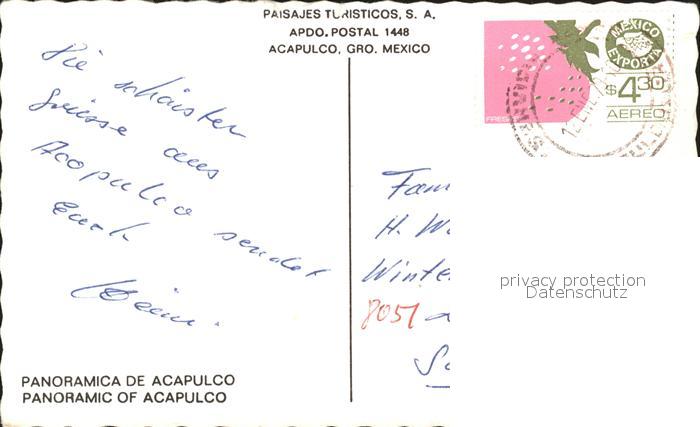 PAISAJES TURISTICOS, S. A.
APDO. POSTAL 1448
ACAPULCO, GRO. MEXICO
MEXICO
EXPORTA
$4.30
AEREO
FRES
Die schönsten
Grüsse aus
Acapulco sendet
Euch
Fam
H. W
Winte
8051
privacy protection
Datenschutz
PANORAMICA DE ACAPULCO
PANORAMIC OF ACAPULCO